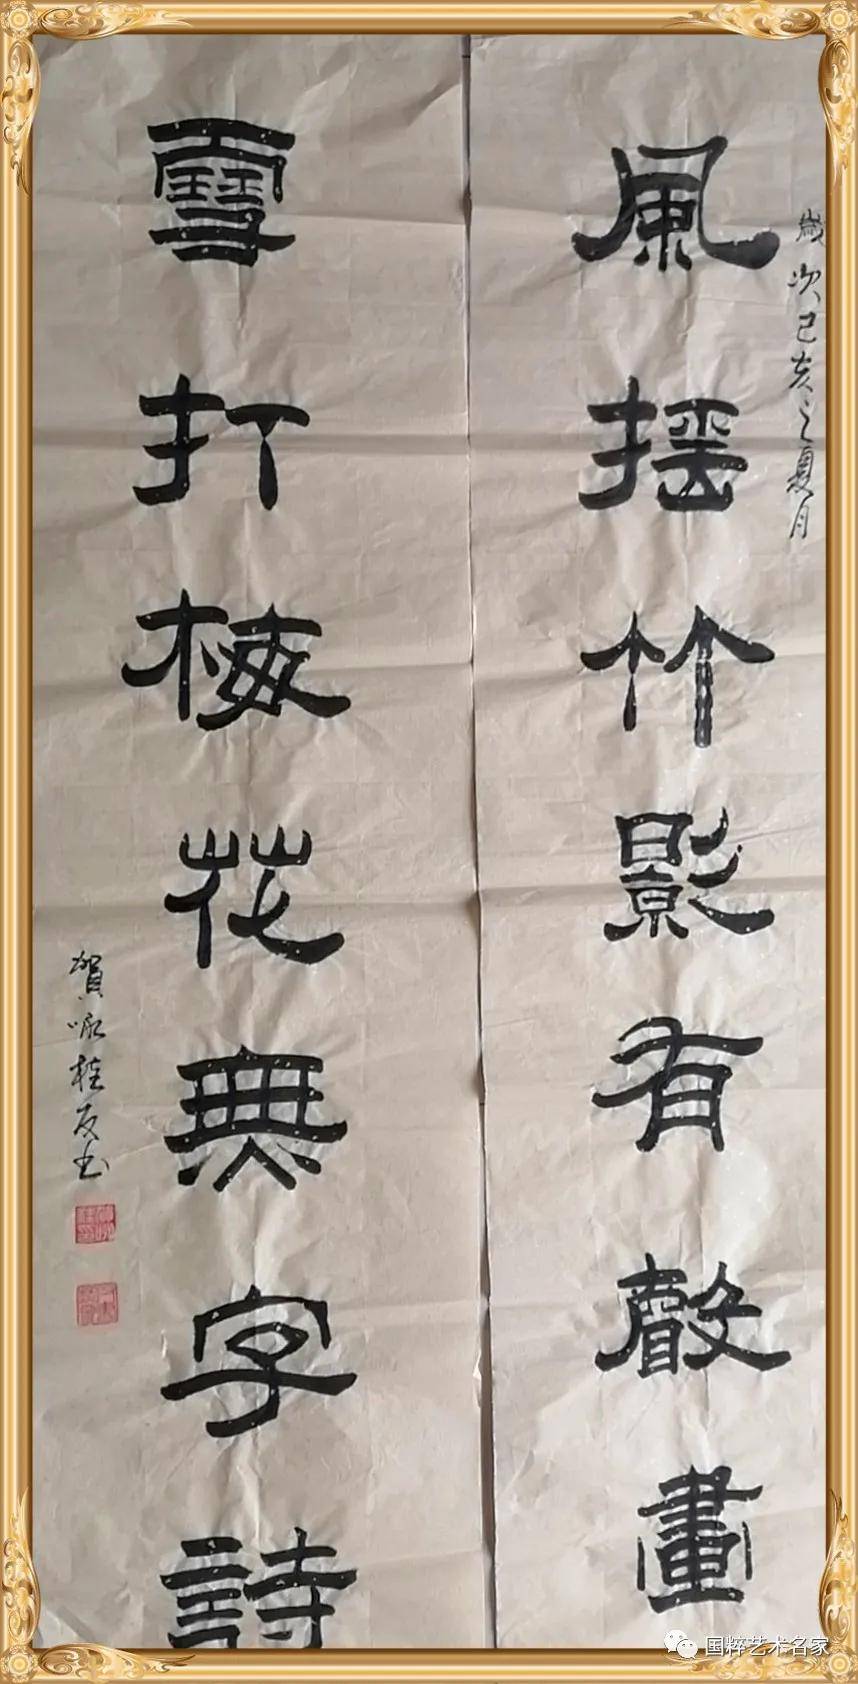 歲次己亥之夏月
風摇竹影有聲畫
雪打梅花無字詩
賀咏桂友书
国粹艺术名家